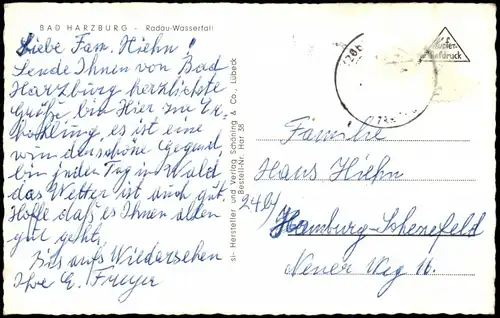 BAD HARZBURG - Radau-Wasserfall
Liebe Fam. Hiehn!
Sende Ihnen von Bad
Harzburg herzlichste
Grüße, bin Hier zur Er,
hohlung, es ist eine
wunderschöne Gegend,
bin jeden Tag in Wald
das Wetter ist auch gut,
Hoffe daß es Ihnen allen
gut geht,
Bis aufs Wiedersehen
Ihre E. Freyer
si- Hersteller und Verlag Schöning & Co., Lübeck
Bestell-Nr. Har 38
Familie
Hans Hiehn
24b/ Hamburg-Schenefeld
Neuer Weg 11.